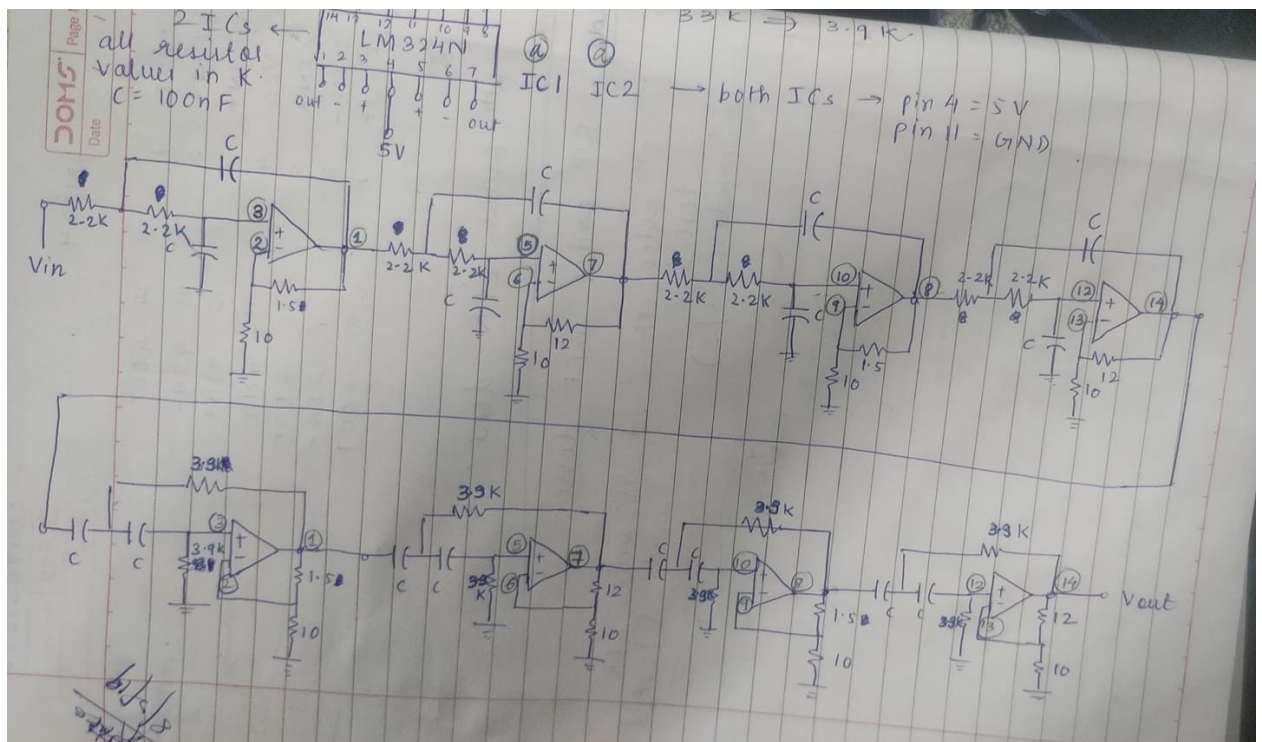 DOMS
Page
Date
2 ICs ←
all resistor
values in K.
C = 100nF
14 13 12 11 10 9 8
LM324N
1 2 3 4 5 6 7
out - + + - out
5V
@ @
IC1 IC2 → both ICs → pin 4 = 5V
pin 11 = GND
33 K ⇒ 3.9 K.
Vin
2.2K
2.2K
C
C
3
2
+
-
1
1.5
10
2.2 K
2.2K
C
C
5
6
+
-
7
12
10
2.2K
2.2K
C
C
10
9
+
-
8
1.5
10
2.2K
2.2K
C
C
12
13
+
-
14
12
10
C
C
3.9K
3.9K
3
2
+
-
1
1.5
10
C
C
3.9K
5
6
+
-
7
12
10
C
C
3.9K
10
9
+
-
8
1.5
10
C
C
3.9K
12
13
+
-
14
12
10
Vout